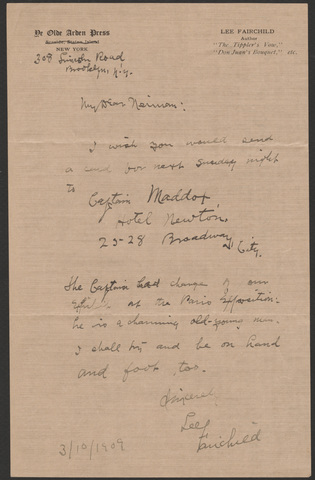 Ye Olde Arden Press
NEW YORK
308 Lincoln Road
Brooklyn, N.Y.
LEE FAIRCHILD
Author
"The Tippler's Vow,"
"Don Juan's Bouquet," etc.
My Dear Neiman:
I wish you would send
a card for next Sunday night
to
Captain Maddox,
Hotel Newton,
25-28 Broadway,
City.
The Captain had charge of our
at the Paris Exposition.
he is a charming old-young man.
I shall try and be on hand
and foot too.
Sincerely
Lee
Fairchild
3/10/1909